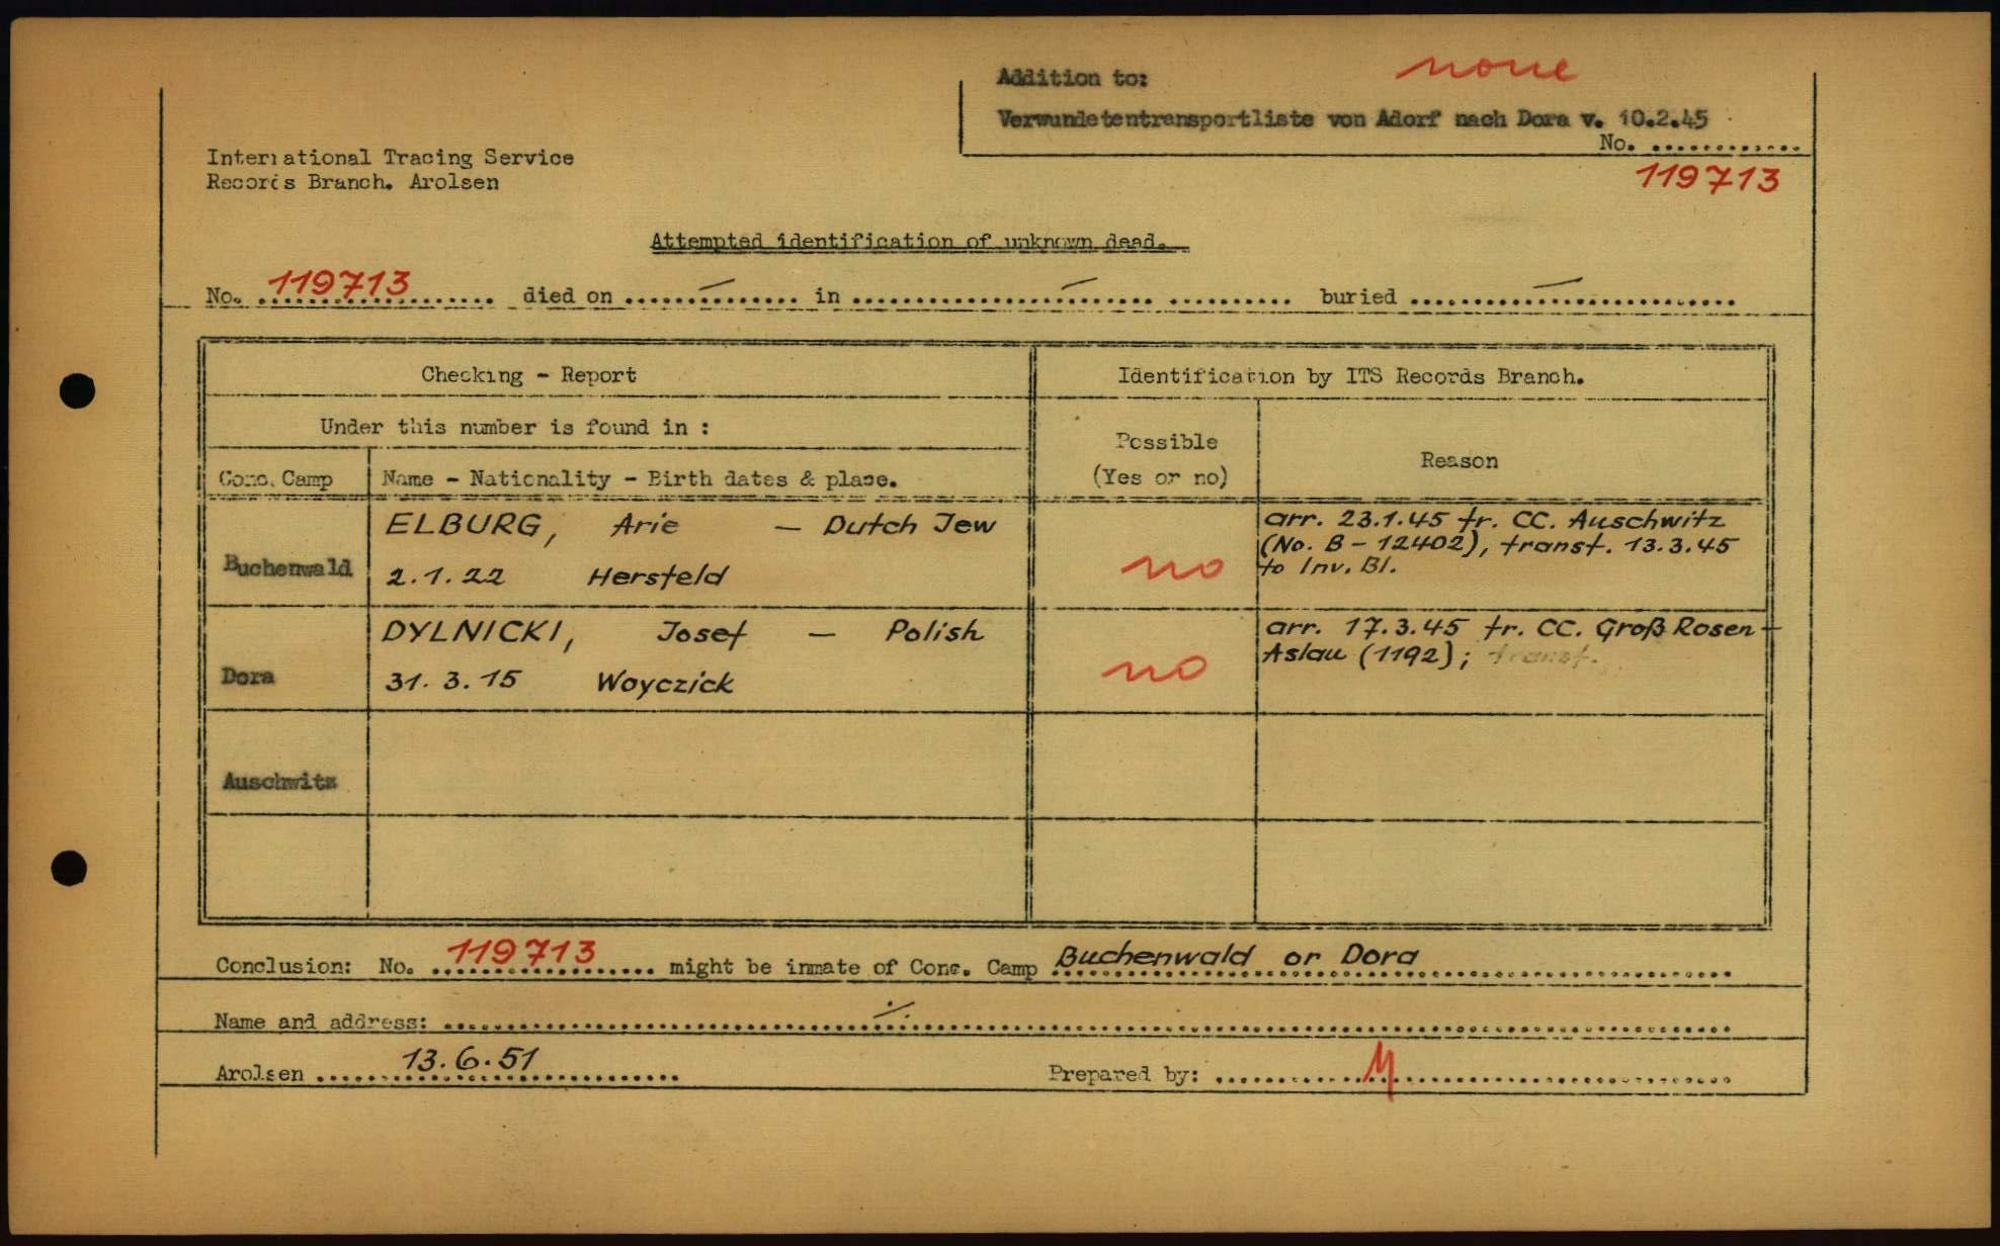 Addition to: none
Verwundetentransportliste von Adorf nach Dora v. 10.2.45
No. ............
119713
International Tracing Service
Records Branch. Arolsen
Attempted identification of unknown dead.
No. 119713 died on ..... — ..... in ..... — ..... buried ..... — .....
Checking - Report
Identification by ITS Records Branch.
Under this number is found in :
Possible
(Yes or no)
Reason
Conc. Camp
Name - Nationality - Birth dates & place.
Buchenwald
ELBURG, Arie — Dutch Jew
2.1.22 Hersfeld
no
arr. 23.1.45 fr. CC. Auschwitz
(No. B - 12402), transf. 13.3.45
to Inv. Bl.
Dora
DYLNICKI, Josef — Polish
31. 3. 15 Woyczick
no
arr. 17.3.45 fr. CC. Groß Rosen -
Aslau (1192); transf.
Auschwitz
Conclusion: No. 119713 might be inmate of Conc. Camp Buchenwald or Dora
Name and address: ./.
Arolsen 13.6.51
Prepared by: